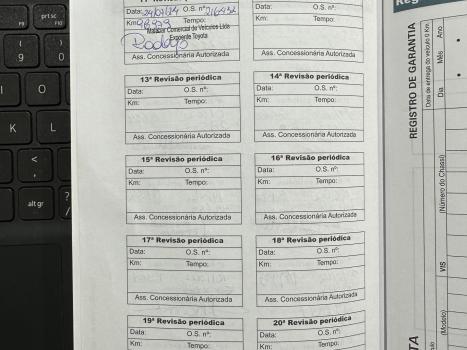 Data: 24/01/24 O.S. nº:
Km: Tempo:
Malabar Comercial de Veículos Ltda
Expoente Toyota
Rodrigo
Ass. Concessionária Autorizada
O.S. nº:
Tempo:
Ass. Concessionária Autorizada
13ª Revisão periódica
Data: O.S. nº:
Km: Tempo:
Ass. Concessionária Autorizada
14ª Revisão periódica
Data: O.S. nº:
Km: Tempo:
Ass. Concessionária Autorizada
15ª Revisão periódica
Data: O.S. nº:
Km: Tempo:
Ass. Concessionária Autorizada
16ª Revisão periódica
Data: O.S. nº:
Km: Tempo:
Ass. Concessionária Autorizada
17ª Revisão periódica
Data: O.S. nº:
Km: Tempo:
Ass. Concessionária Autorizada
18ª Revisão periódica
Data: O.S. nº:
Km: Tempo:
Ass. Concessionária Autorizada
19ª Revisão periódica
Data: O.S. nº:
Km: Tempo:
20ª Revisão periódica
Data: O.S. nº:
Km: Tempo:
REGISTRO DE GARANTIA
Data de entrega do veículo 0 Km:
Dia Mês Ano
(Número do Chassi)
VIS
(Modelo)
prt sc
F9
F10
9
0
I
O
K
L
<
,
?
/
alt gr